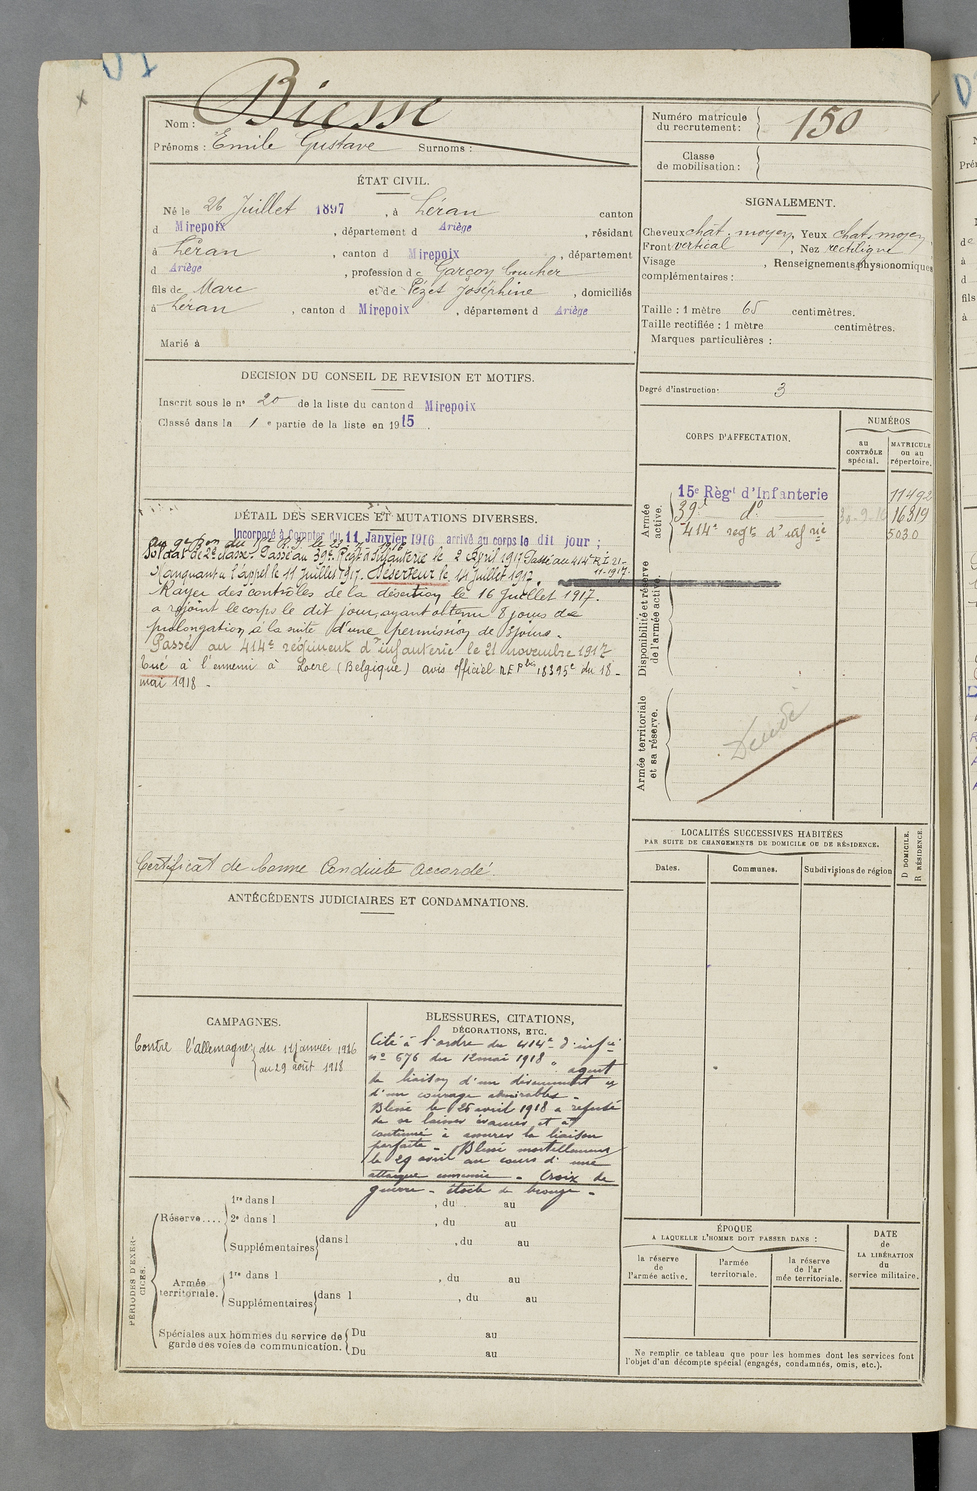 Nom : Biesse
Prénoms : Emile Gustave Surnoms :
Numéro matricule du recrutement : 150
Classe de mobilisation :
ÉTAT CIVIL.
Né le 26 Juillet 1897, à Léran canton
d Mirepoix, département d Ariège, résidant
à Léran, canton d Mirepoix, département
d Ariège, profession de Garçon boucher
fils de Marc et de Pézet Joséphine, domiciliés
à Léran, canton d Mirepoix, département d Ariège
Marié à
SIGNALEMENT.
Cheveux chât. moyen, Yeux chat. moyen
Front vertical, Nez rectiligne
Visage , Renseignements physionomiques
complémentaires :
Taille : 1 mètre 65 centimètres.
Taille rectifiée : 1 mètre centimètres.
Marques particulières :
DECISION DU CONSEIL DE REVISION ET MOTIFS.
Inscrit sous le n° 20 de la liste du canton d Mirepoix
Classé dans la 1e partie de la liste en 1915.
Degré d'instruction : 3
CORPS D'AFFECTATION.
NUMÉROS
au CONTRÔLE spécial.
MATRICULE ou au répertoire.
Armée active.
15e Régt d'Infanterie 11492
39e do 16319
414e regt d'infrie 5030
Disponibilité et réserve de l'armée active.
Armée territoriale et sa réserve.
Décédé
DÉTAIL DES SERVICES ET MUTATIONS DIVERSES.
Incorporé à Compter du 11 Janvier 1916 arrivé au corps le dit jour ;
Soldat de 2e classe. Passé au 39e Régt d'Infanterie le 2 Avril 1917. Passé au 414e R.I. 21-11-1917.
Manquant à l'appel le 11 Juillet 1917. Déserteur le 14 Juillet 1917.
Rayer des contrôles de la désertion le 16 Juillet 1917.
a rejoint le corps le dit jour, ayant obtenu 8 jours de
prolongation, à la suite d'une permission de 8 jours.
Passé au 414e régiment d'infanterie le 21 novembre 1917
tué à l'ennemi à Locre (Belgique) avis officiel 18395e du 18
mai 1918.
Certificat de bonne Conduite accordé.
ANTÉCÉDENTS JUDICIAIRES ET CONDAMNATIONS.
LOCALITÉS SUCCESSIVES HABITÉES
PAR SUITE DE CHANGEMENTS DE DOMICILE OU DE RÉSIDENCE.
Dates. Communes. Subdivisions de région
D DOMICILE. R RÉSIDENCE.
CAMPAGNES.
Contre l'allemagne du 11 janvier 1916
au 29 août 1918
BLESSURES, CITATIONS,
DÉCORATIONS, ETC.
Cité à l'ordre du 414e d'infie
n° 676 du 12 mai 1918 " agent
de liaison d'un dévouement et
d'un courage admirables.
Blessé le 26 avril 1918 a refusé
de se laisser évacuer et a
continué à assurer la liaison
parfaite. Blessé mortellement
le 29 avril au cours d'une
attaque ennemie. Croix de
guerre - étoile de bronze -
PÉRIODES D'EXERCICES.
Réserve....
1re dans l , du au
2e dans l , du au
Supplémentaires dans l , du au
Armée territoriale.
1re dans l , du au
Supplémentaires dans l , du au
Spéciales aux hommes du service de garde des voies de communication.
Du au
Du au
ÉPOQUE
A LAQUELLE L'HOMME DOIT PASSER DANS :
la réserve de l'armée active.
l'armée territoriale.
la réserve de l'armée territoriale.
DATE de LA LIBÉRATION du service militaire.
Ne remplir ce tableau que pour les hommes dont les services font
l'objet d'un décompte spécial (engagés, condamnés, omis, etc.).